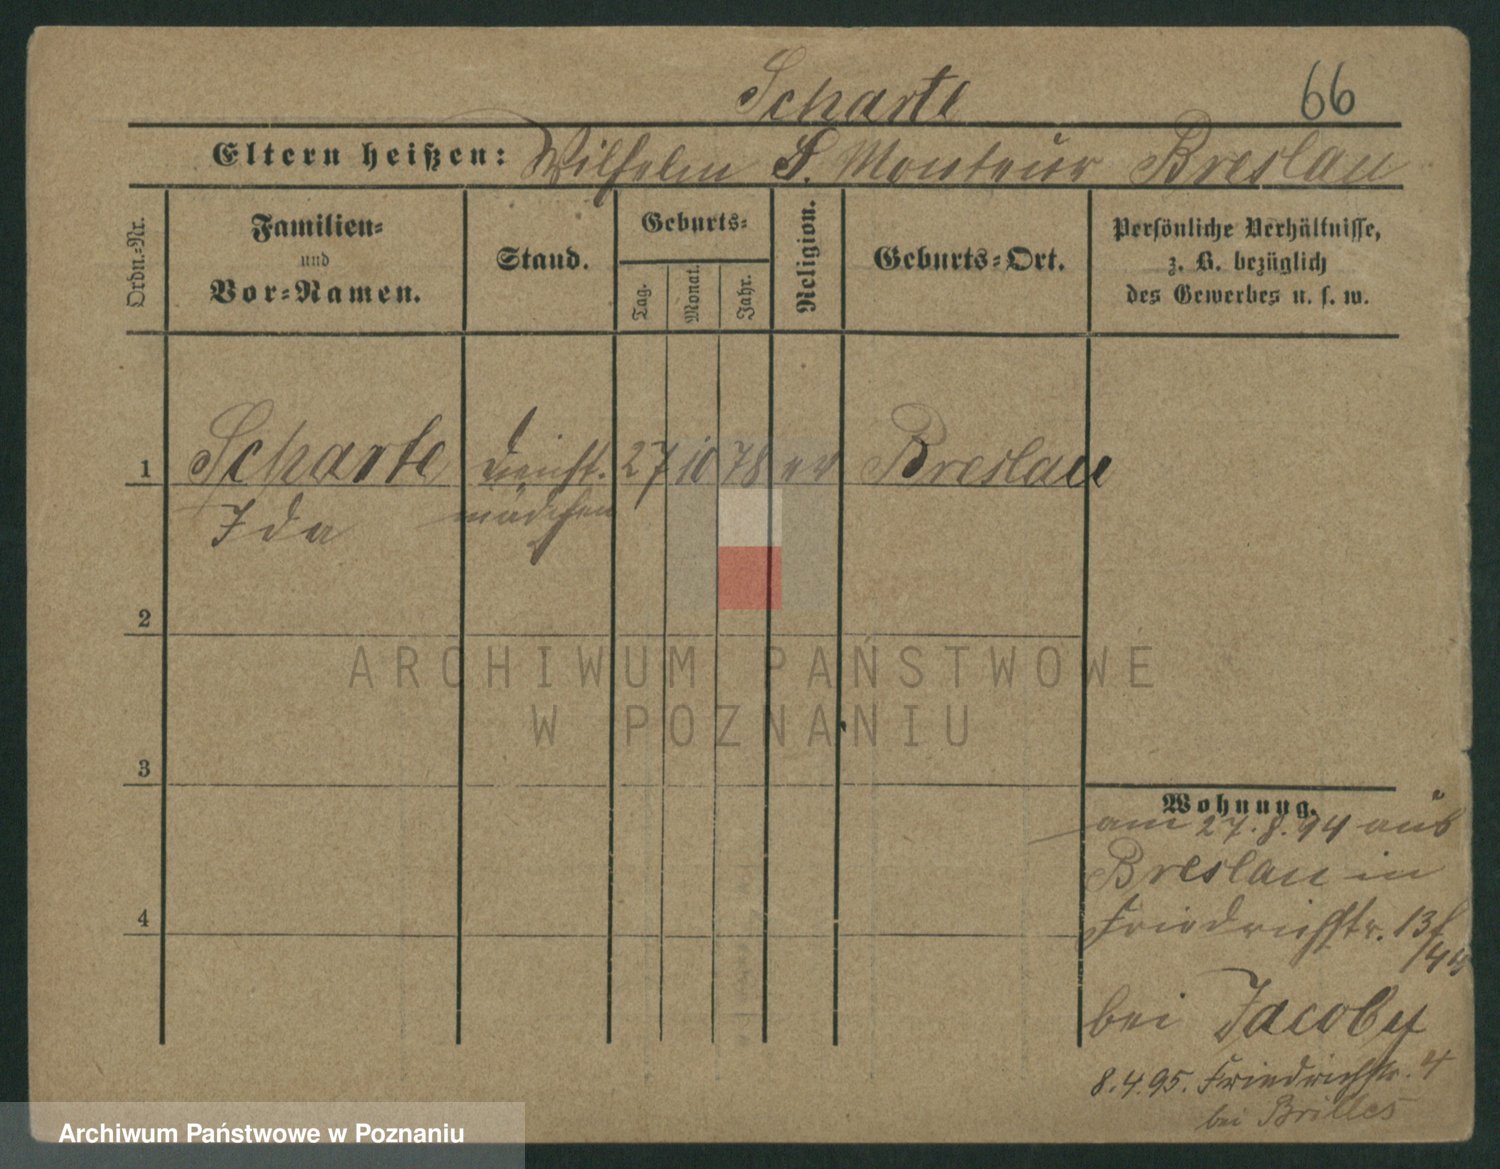 Scharte
66
Eltern heißen: Wilhelm S. Monteur Breslau
Ordn.-Nr.
Familien-
und
Vor-Namen.
Stand.
Geburts-
Tag.
Monat.
Jahr.
Religion.
Geburts-Ort.
Persönliche Verhältnisse,
z. B. bezüglich
des Gewerbes u. s. w.
1 Scharte Dienst- 27 10 78 ev Breslau
Ida mädchen
2
3
4
Wohnung.
am 27.8.94 aus
Breslau in
Friedrichstr. 13
bei Jacoby
8.4.95. Friedrichstr. 4
bei Brilles
ARCHIWUM PAŃSTWOWE
W POZNANIU
Archiwum Państwowe w Poznaniu